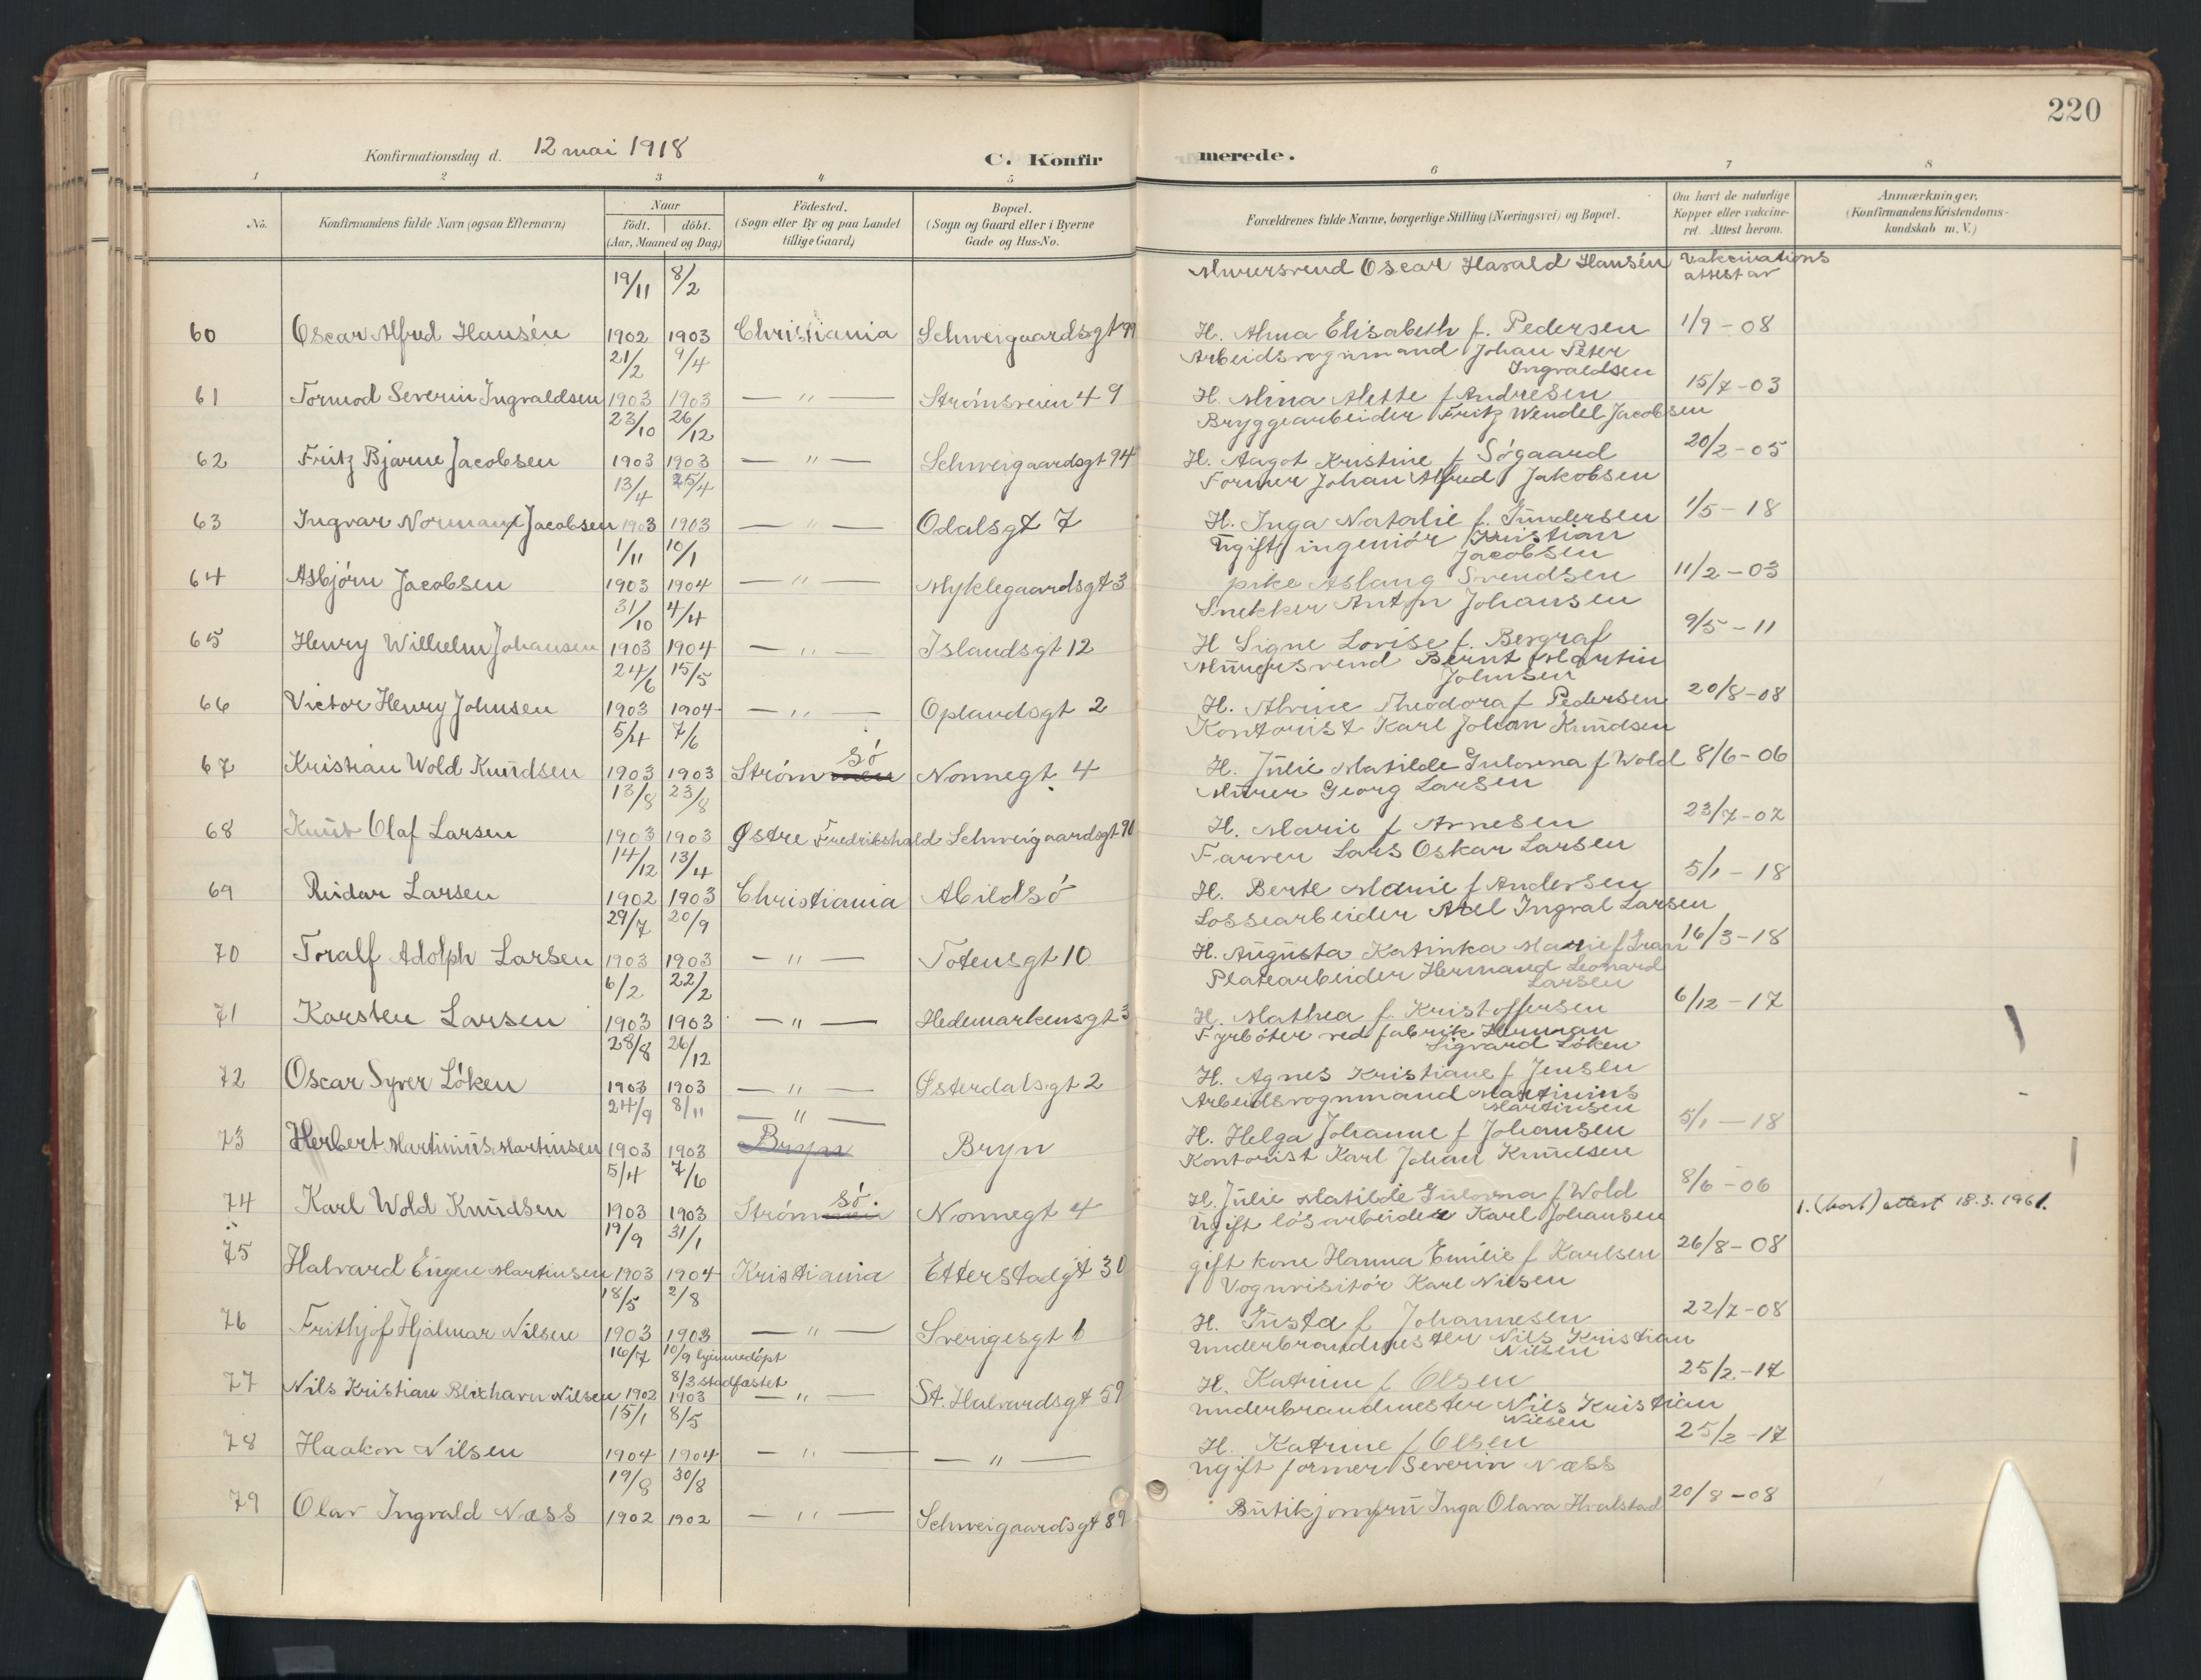 220
Konfirmationsdag d. 12 mai 1918
C. Konfirmerede.
1 2 3 4 5 6 7 8
No.
Konfirmandens fulde Navn (ogsaa Efternavn)
Naar
født. døbt.
(Aar, Maaned og Dag)
Fødested.
(Sogn eller By og paa Landet
tillige Gaard)
Bopæl.
(Sogn og Gaard eller i Byerne
Gade og Hus-No.
Forældrenes fulde Navne, borgerlige Stilling (Næringsvei) og Bopæl.
Om havt de naturlige
Kopper eller vakcine-
ret. Attest herom.
Anmærkninger.
(Konfirmandens Kristendoms-
kundskab m. V.)
19/11 8/2 Murersvend Oscar Harald Hansén Vakcinations
attest av
60 Oscar Alfred Hansén 1902 1903 Christiania Schweigaardsgt 99 H. Alma Elisabeth f. Pedersen 1/9-08
21/2 9/4 Arbeidsvognmand Johan Peter
Ingvaldsen
61 Tormod Severin Ingvaldsen 1903 1903 — " — Strømsveien 49 H. Alina Alette f Andresen 15/7-03
23/10 26/12 Bryggearbeider Fritz Wendel Jacobsen
62 Fritz Bjarne Jacobsen 1903 1903 — " — Schweigaardsgt 94 H. Aagot Kristine f Søgaard 20/2-05
13/4 25/4 Former Johan Alfred Jakobsen
63 Ingvar Normann Jacobsen 1903 1903 — " — Odalsgt 7 H. Inga Natalie f. Gundersen 1/5-18
1/11 10/1 Ugift ingeniør Kristian
Jacobsen
64 Asbjørn Jacobsen 1903 1904 — " — Myklegaardsgt 3 pike Aslaug Svendsen 11/2-03
31/10 4/4 Snekker Anton Johansen
65 Henry Wilhelm Johansen 1903 1904 — " — Islandsgt 12 H Signe Lovise f. Bergraf 9/5-11
24/6 15/5 Murersvend Bernt Martin
Johnsen
66 Victor Henry Johnsen 1903 1904 — " — Oplandsgt 2 H. Alvine Theodora f Pedersen 20/8-08
5/4 7/6 Kontorist Karl Johan Knudsen
67 Kristian Wold Knudsen 1903 1903 Strømmen sø Nonnegt. 4 H. Julie Matilde Gulovna f Wold 8/6-06
13/8 23/8 Murer Georg Larsen
68 Knut Olaf Larsen 1903 1903 Østre Fredrikshald Schweigaardsgt 90 H. Marie f Arnesen 23/7-02
14/12 13/4 Farver Lars Oskar Larsen
69 Reidar Larsen 1902 1903 Christiania Abildsø H. Berte Marie f Andersen 5/1-18
29/7 20/9 Lossearbeider Axel Ingval Larsen
70 Toralf Adolph Larsen 1903 1903 — " — Totensgt 10 H. Augusta Katinka Marie f Gran 16/3-18
6/2 22/2 Platearbeider Hermand Leonard
Larsen
71 Karsten Larsen 1903 1903 — " — Hedemarkensgt 3 H. Mathea f. Kristoffersen 6/12-17
28/8 26/12 Fyrbøter ved fabrik Herman
Sigvard Løken
72 Oscar Syver Løken 1903 1903 — " — Østerdalsgt 2 H. Agnes Kristiane f Jensen
24/9 8/11 — " — Arbeidsvognmand Martinius
Martinsen
73 Herbert Martinius Martinsen 1903 1903 Bryn Bryn H. Helga Johanne f Johansen 5/1-18
5/4 7/6 Kontorist Karl Johan Knudsen
74 Karl Wold Knudsen 1903 1903 Strømmen sø. Nonnegt 4 H. Julie Matilde Gulovna f Wold 8/6-06
1. (bort) attest 18.3.1961.
19/9 31/1 Ugift løsarbeider Karl Johansen
75 Halvard Eugen Martinsen 1903 1904 Kristiania Etterstadgt 30 gift kone Hanna Emilie f Karlsen 26/8-08
18/5 2/8 Vognvisitør Karl Nilsen
76 Frithjof Hjalmar Nilsen 1903 1903 — " — Sverigesgt 6 H. Gusta f Johannesen 22/7-08
16/7 10/9 hjemmedøpt Underbrandmester Nils Kristian
Nilsen
8/3 stadfæstet
77 Nils Kristian Blixhavn Nilsen 1902 1903 — " — St. Halvardsgt 59 H. Katrine f Olsen 25/2-17
15/1 8/5 Underbrandmester Nils Kristian
Nilsen
78 Haakon Nilsen 1904 1904 — " — — " — H. Katrine f Olsen 25/2-17
19/8 30/8 Ugift former Severin Næss
79 Olav Ingvald Næss 1902 1902 — " — Schweigaardsgt 89 Butikjomfru Inga Olava Hvalstad 20/8-08